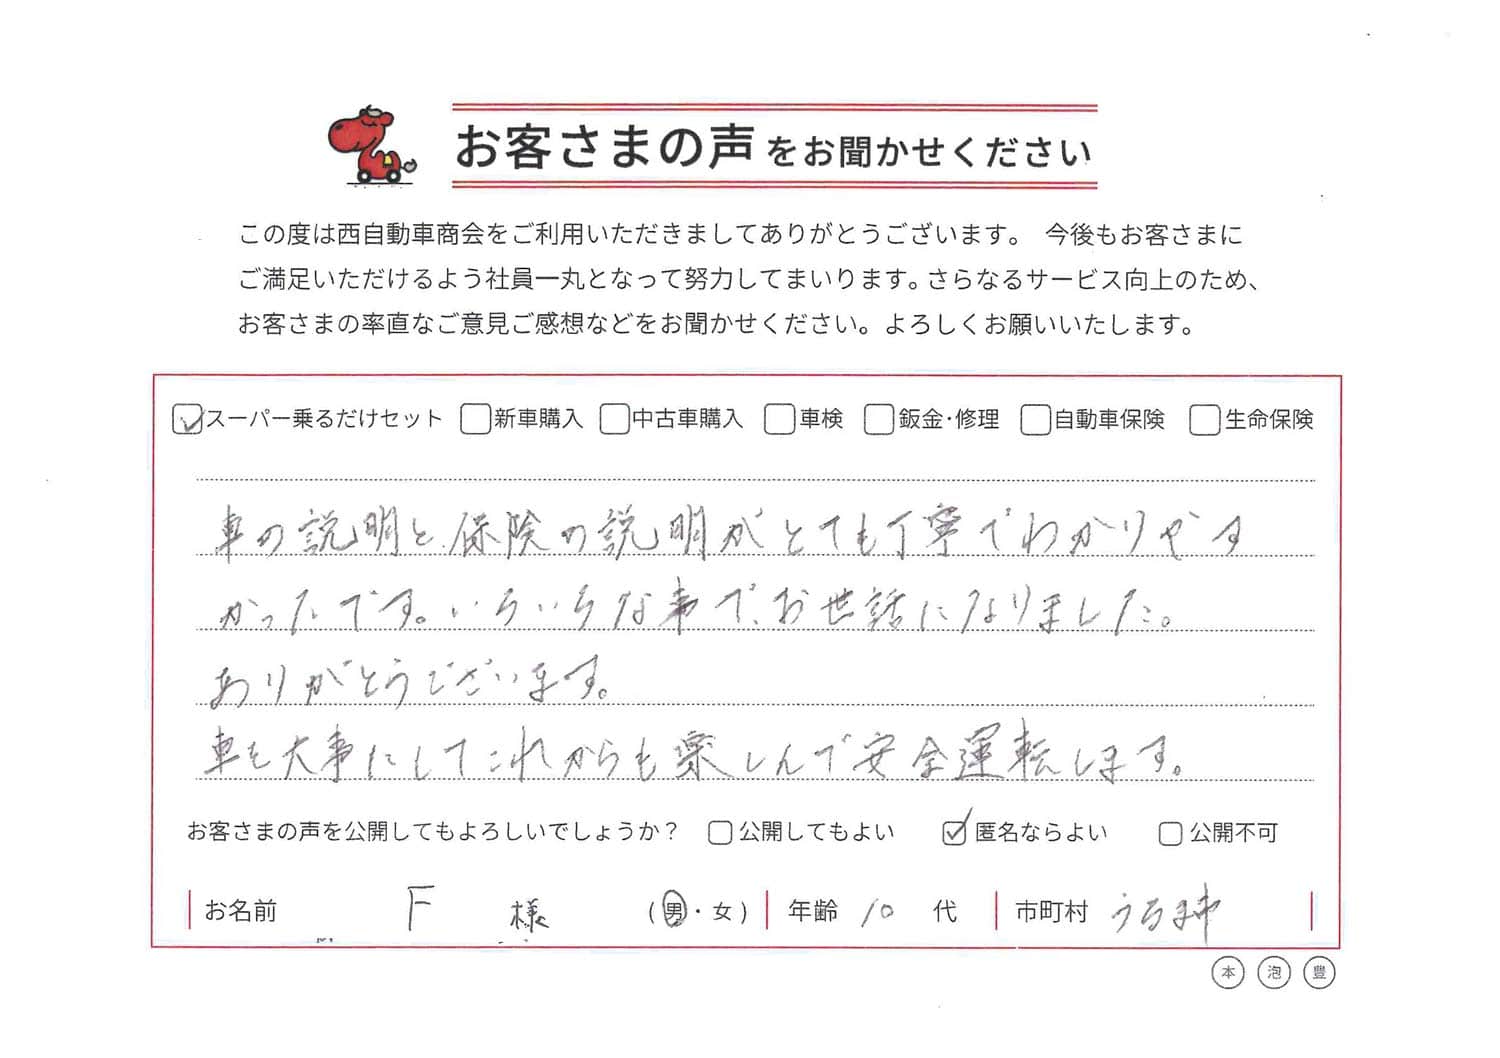 お客さまの声をお聞かせください
この度は西自動車商会をご利用いただきましてありがとうございます。 今後もお客さまに
ご満足いただけるよう社員一丸となって努力してまいります。さらなるサービス向上のため、
お客さまの率直なご意見ご感想などをお聞かせください。よろしくお願いいたします。
☑スーパー乗るだけセット □新車購入 □中古車購入 □車検 □鈑金・修理 □自動車保険 □生命保険
車の説明と保険の説明がとても丁寧でわかりやす
かったです。いろいろな事で、お世話になりました。
ありがとうございます。
車を大事にしてこれからも楽しんで安全運転します。
お客さまの声を公開してもよろしいでしょうか？ □公開してもよい ☑匿名ならよい □公開不可
お名前 F 様 (男・女) 年齢 10 代 市町村 うるま市
本 泡 豊